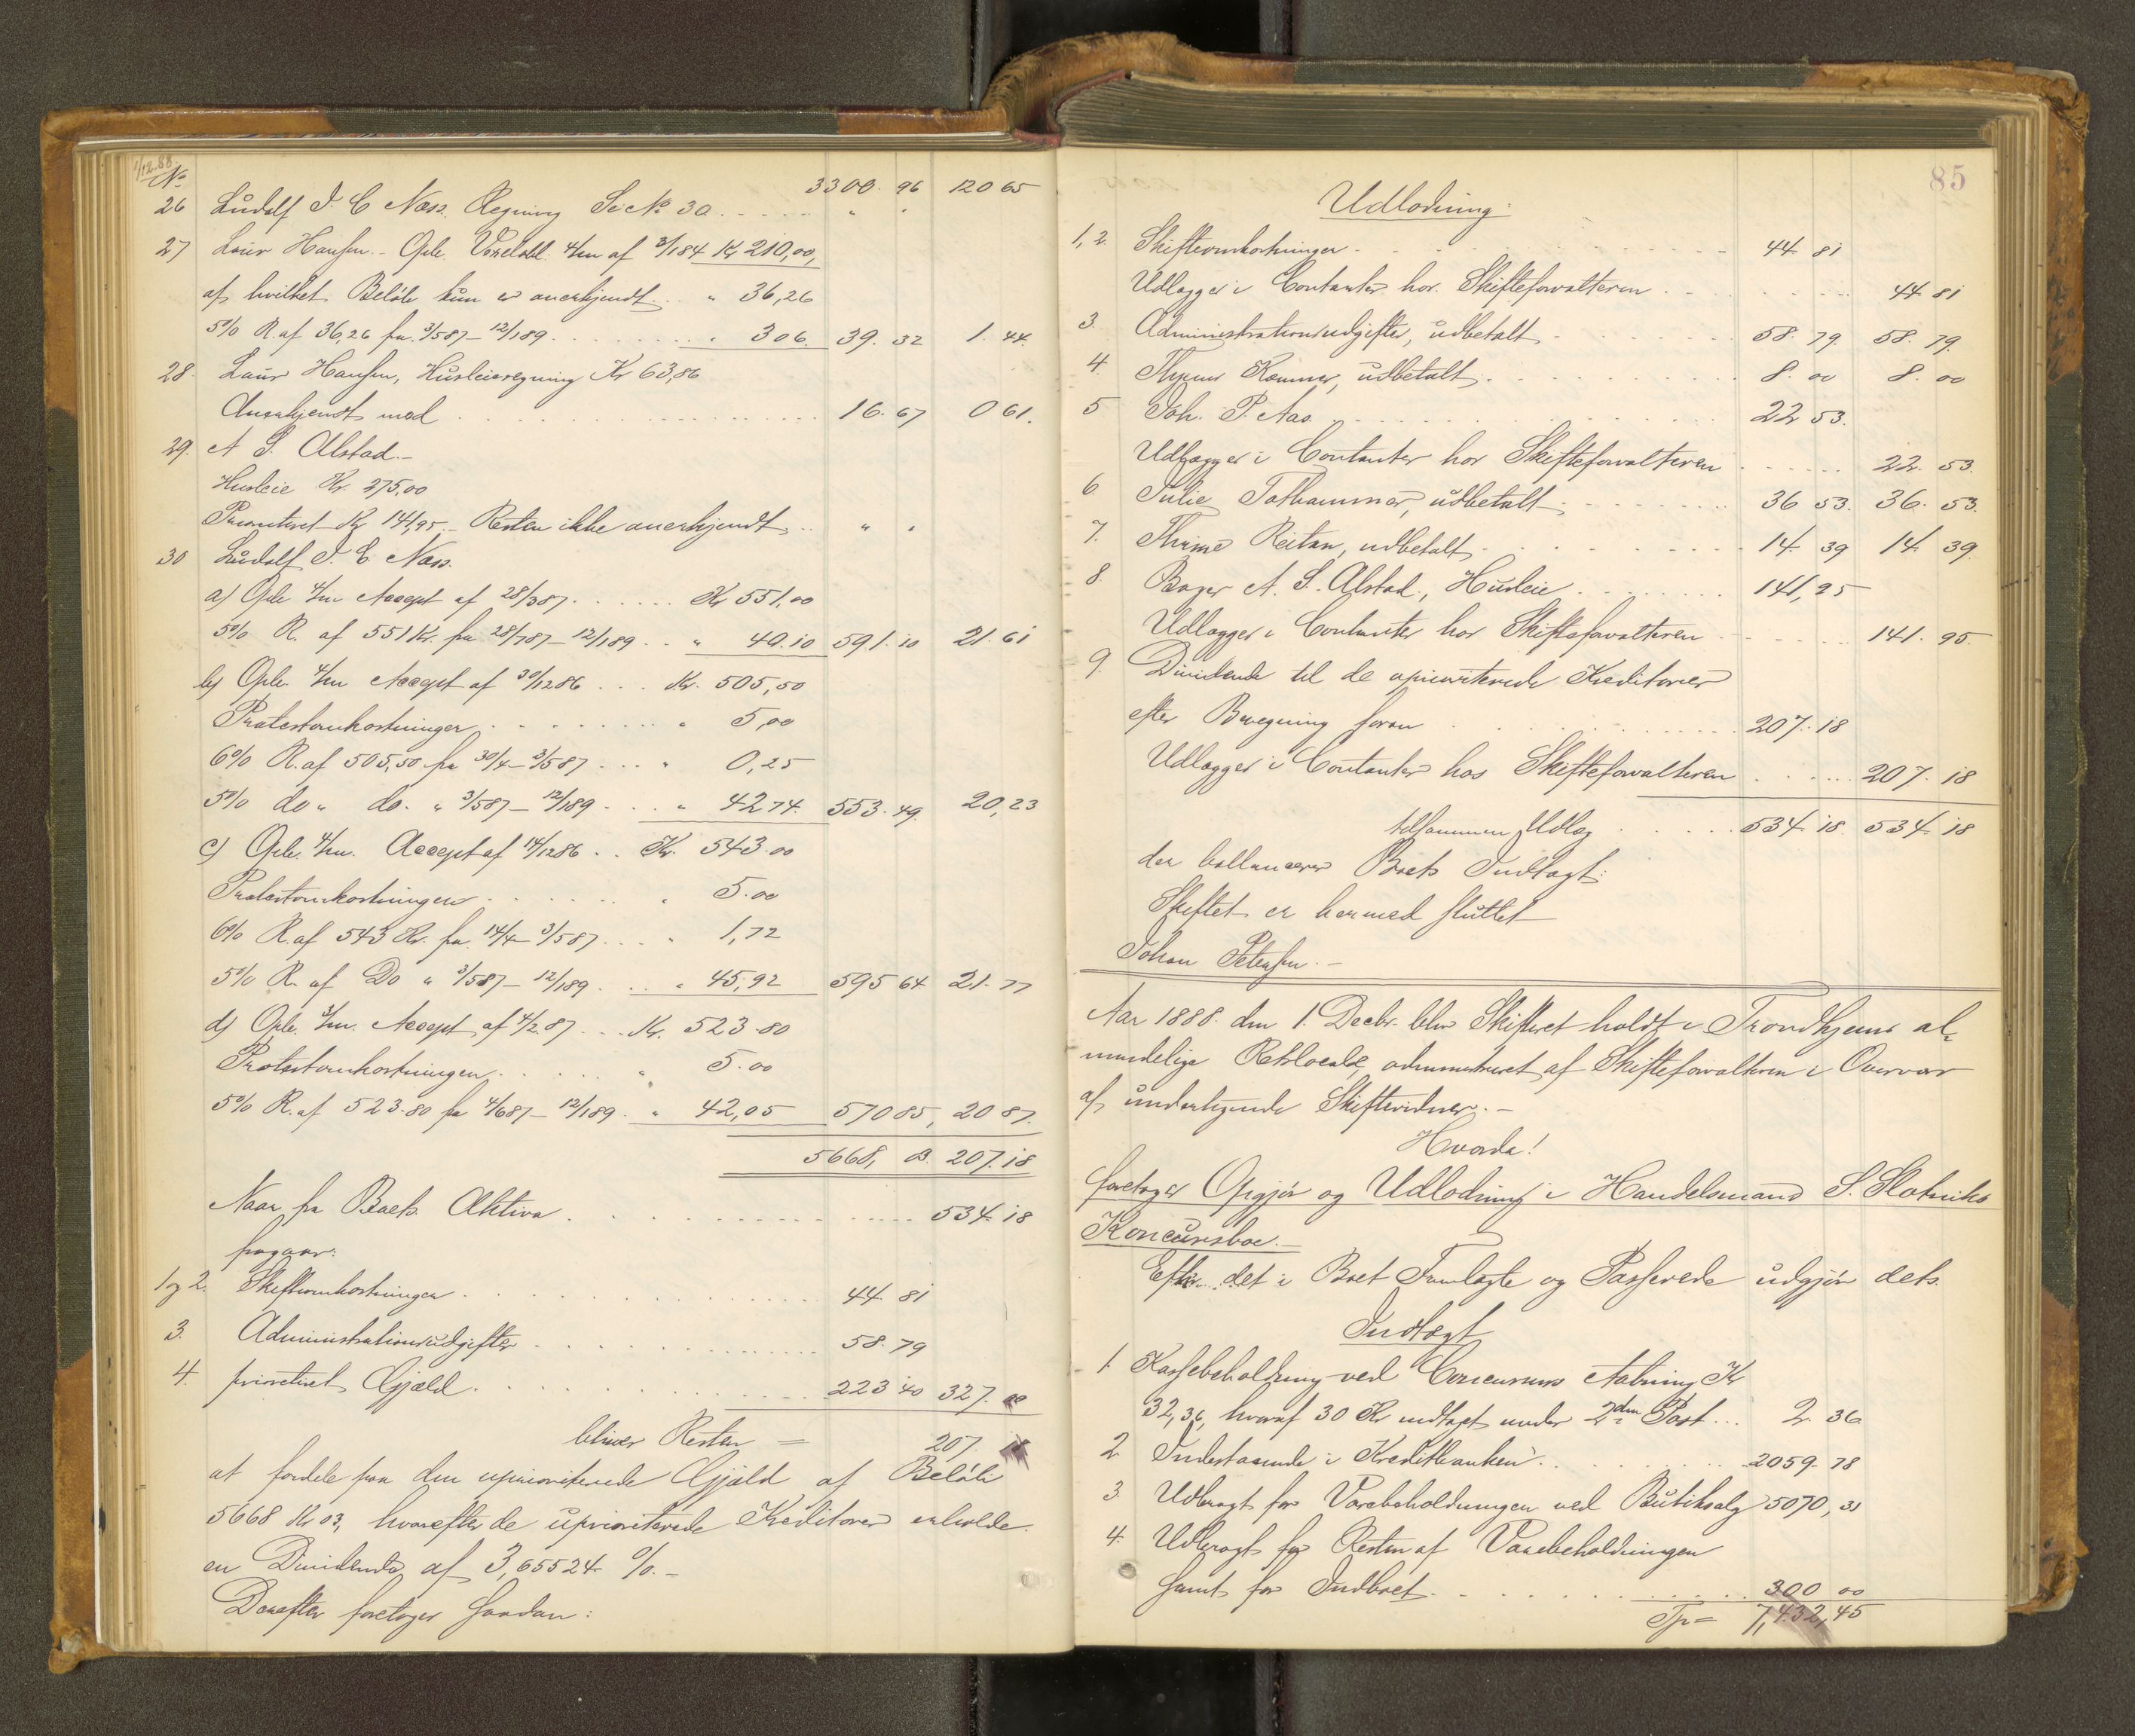 1/12.88.
No 3300. 96 120 65
26 Ludolf J. C Næss. Regning Se No 30 . . . . . " "
27 Laur Hansen.. Opk. Vexelobl. 4/m af 3/184 Kr 210,00,
af hvilket Beløb kun er anerkjendt . . " 36,26
5% R. af 36,26 fra 3/587 – 12/189 . . . . . . . . " 3 06. 39. 32 1. 44.
28. Laur Hansen, Husleieregning Kr 63,86
Anerkjendt med . . . . . . . . . . 16. 67 0 61.
29. A S. Alstad.–
Husleie Kr. 275,00
Prioriteret Kr 141,95. – Resten ikke anerkjendt . . " "
30 Ludolf J. C. Næss.
a) Opk 4/m Accept af 28/387. . . . . . Kr 551,00
5% R. af 551 Kr. fra 28/787 – 12/189 . . " 40. 10 591. 10 21. 61
b) Opk. 4/m Accept af 30/1286 . . . Kr. 505,50
Protestomkostninger . . . . . . . . " 5,00
6% R. af 505,50 fra 30/4 – 3/587 . . . " 0,25
5% do " do. " 3/587 – 12/189 . . . " 42 74. 553. 49. 20,23
c) Opk. 4/m. Accept af 14/1286 . . Kr. 543.00
Protestomkostninger . . . . . . " 5.00
6% R. af 543 Kr. fra 14/4 – 3/587 . . . . " 1,72
5% R. af Do " 3/587 – 12/189 . . . " 45,92 595 64. 21. 77
d) Opk. 4/m. Accept af 4/2.87 . . . Kr. 523.80
Protestomkostninger . . . . . " 5.00
5% R. af 523.80 fra 4/687 – 12/189 . " 42,05 570 85, 20 87.
5668, 03. 207. 18
Naar fra Boets Aktiva . . . . . . . . . . 534. 18
fragaar:
1 og 2. Skifteomkostninger . . . . . . . . . . 44. 81
3. Administrationsudgifter . . . . . . . . . 58. 79
4. prioriteret Gjæld . . . . . . . . . . 223 40 327. 00
bliver Resten = 207. 18
at fordele paa den uprioriterede Gjæld af Beløb
5668 Kr 03, hvorefter de uprioriterede Kreditorer erholde
en Dividende af 3,65524 %. –
Derefter foretoges saadan:
85
Udlodning:
1, 2. Skifteomkostninger . . . . . . . . 44 81
Udlægges i Contanter hos Skifteforvalteren . . . . . 44 81
3. Administrationsudgifter, udbetalt . . . . . . 58. 79. 58. 79.
4. Kammer, udbetalt . . . . . . . . 8. 00 8. 00
5 Joh. P. Aas . . . . . . . . . . 22 53.
Udlægges i Contanter hos Skifteforvalteren . . . . . 22. 53.
6. Julie udbetalt . . . . . . 36 53. 36. 53.
7. Reitan, udbetalt . . . . . . . . 14. 39 14. 39.
8. Bager A. S. Alstad, Husleie . . . . . . 141,95
Udlægges i Contanter hos Skifteforvalteren . . . . . 141. 95.
9. Dividende til de uprioriterede Kreditorer
efter Beregning foran . . . . . . . . 207. 18
Udlægges i Contanter hos Skifteforvalteren . . . . 207. 18
tilsammen Udlæg . . . . . 534. 18. 534. 18
der ballancerer Boets Indtægt:
Skiftet er hermed sluttet
Johan Petersen. –
Aar 1888. den 1. Decbr. blev Skifteret holdt i Trondhjems al-
mindelige Retslocale, administreret af Skifteforvalteren i Overvær
af undertegnede Skiftevidner. –
Hvorda!
foretoges Opgjør og Udlodning i Handelsmand S. Slotniks
Koncursboe. –
Efter det i Boet Fremlagte og Passerede udgjør dets.
Indtægt
1. Kassebeholdning ved Concursens Aabning Kr
32,36, hvoraf 30 Kr indtaget under 2den Post . . . 2 36
2 Indestaaende i Kreditbanken . . . . . . . 2059. 78
3 Udbragt for Varebeholdningen ved Butiksalg 5070, 31
4. Udbragt for Resten af Varebeholdningen
samt for Indboet . . . . . . . . . . 300 00
Tr = 7,432,45